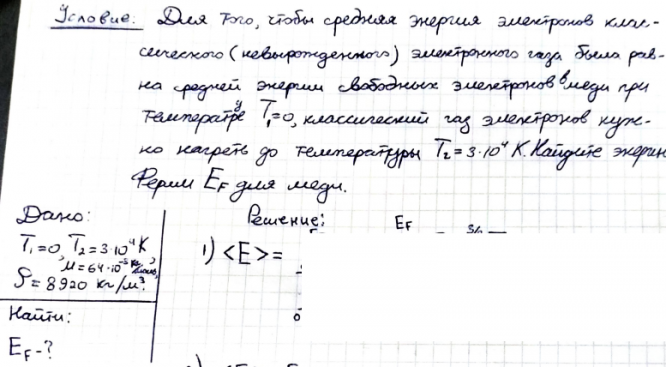 Условие: Для того, чтобы средняя энергия электронов клас-
сического (невырожденного) электронного газа была рав-
на средней энергии свободных электронов в меди при
температуре T₁=0, классический газ электронов нуж-
но нагреть до температуры T₂=3·10⁴ К. Найдите энергию
Ферми E_F для меди.
Дано:
T₁=0, T₂=3·10⁴ К,
μ=64·10⁻³ кг/моль,
ρ=8920 кг/м³
Найти:
E_F-?
Решение:
E_F
1) <E>=